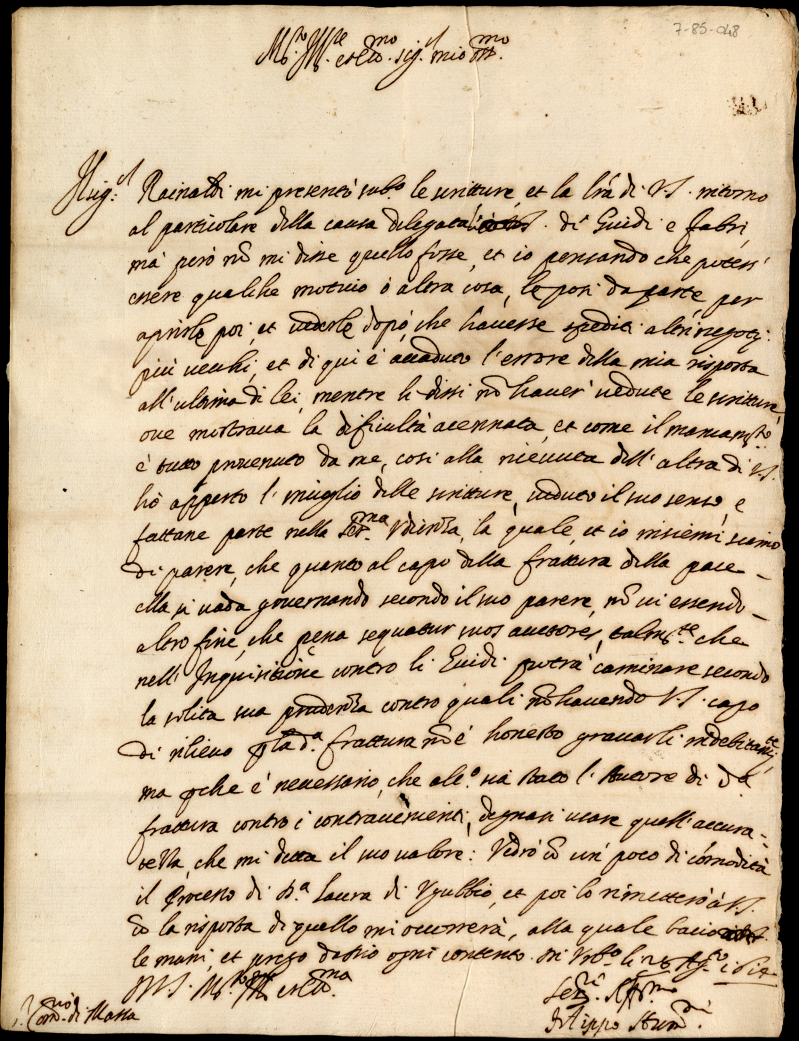 7-85-048
M.to Ill.re et Ecc.mo sig.r mio oss.mo
Il sig.r Rainaldi mi presentò sub.o le scritture, et la l'ra di V.S. intorno
al particolare della causa delegata di Guidi e Fabri,
mà però nõ mi disse quello fosse, et io pensando che potess'
essere qualche motivo ò altra cosa, le posi da parte per
aprirle poi, et vederle dopò, che havesse spediti altri negotij
più vecchi, et di qui è accaduto l'errore della mia risposta
all'ultima di lei, mentre li dissi nõ haver' vedute le scritture,
ove mostrava la dificultà acennata, et come il mancam.to
è tutto provenuto da me, così alla ricevuta dell'altra di V.S.
hò apperto l'inviglio delle scritture, veduto il suo senso, e
fattane parte nella Ser.ma Udienza, la quale, et io insiemi siamo
di parere, che quanto al capo della frattura della pace -
ella si vada governando secondo il suo parere, nõ vi essendo -
altro fine, che pena sequatur suos auctores, talm.te che
nell'Inquisitiõe contro li Guidi potrà caminare secondo
la solita sua prudenza contro quali nõ havendo V.S. capo
di rilievo p la d.a frattura nõ è honesto gravarli indebitam.te,
ma pche è necessario, che alc.o sia stato l'Autore di d.a
frattura contro i contravenienti, degnasi usare quell'accura-
tezza, che mi detta il suo valore: Vedrò cõ un' poco di cõmodità
il Processo di D.a Laura di Ugubbio, et poi lo rimetterò à V.S.
cõ la risposta di quello mi ocurrerà, alla quale bacio
le mani, et prego da Dio ogni contento. Di Urb.o li 28 Ag.to 1612
Di V.S. M.to Ill.re et Ecc.ma
S.r Com.rio di Massa
Ser.re Aff.mo
Filippo